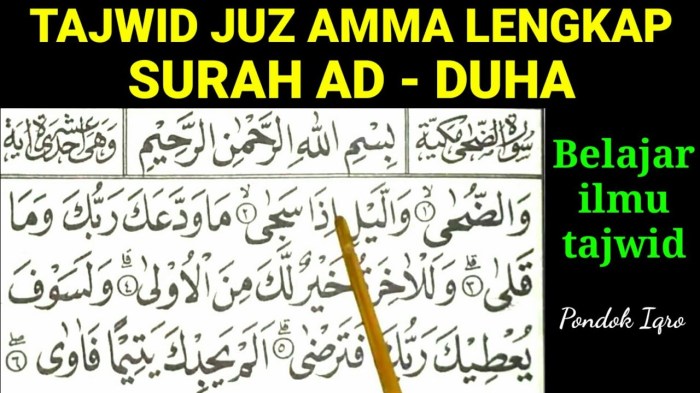 TAJWID JUZ AMMA LENGKAP
SURAH AD - DUHA
سُورَةُ الضُّحٰى مَكِّيَّةٌ
بِسْمِ اللهِ الرَّحْمٰنِ الرَّحِيْمِ
وَهِيَ اِحْدٰى عَشْرَةَ اٰيَةً
وَالضُّحٰىۙ ۝١ وَالَّيْلِ اِذَا سَجٰىۙ ۝٢ مَا وَدَّعَكَ رَبُّكَ وَمَا
قَلٰىۗ ۝٣ وَلَلْاٰخِرَةُ خَيْرٌ لَّكَ مِنَ الْاُوْلٰىۗ ۝٤ وَلَسَوْفَ
يُعْطِيْكَ رَبُّكَ فَتَرْضٰىۗ ۝٥ اَلَمْ يَجِدْكَ يَتِيْمًا فَاٰوٰىۖ ۝٦
Belajar
ilmu
tajwid
Pondok Iqro